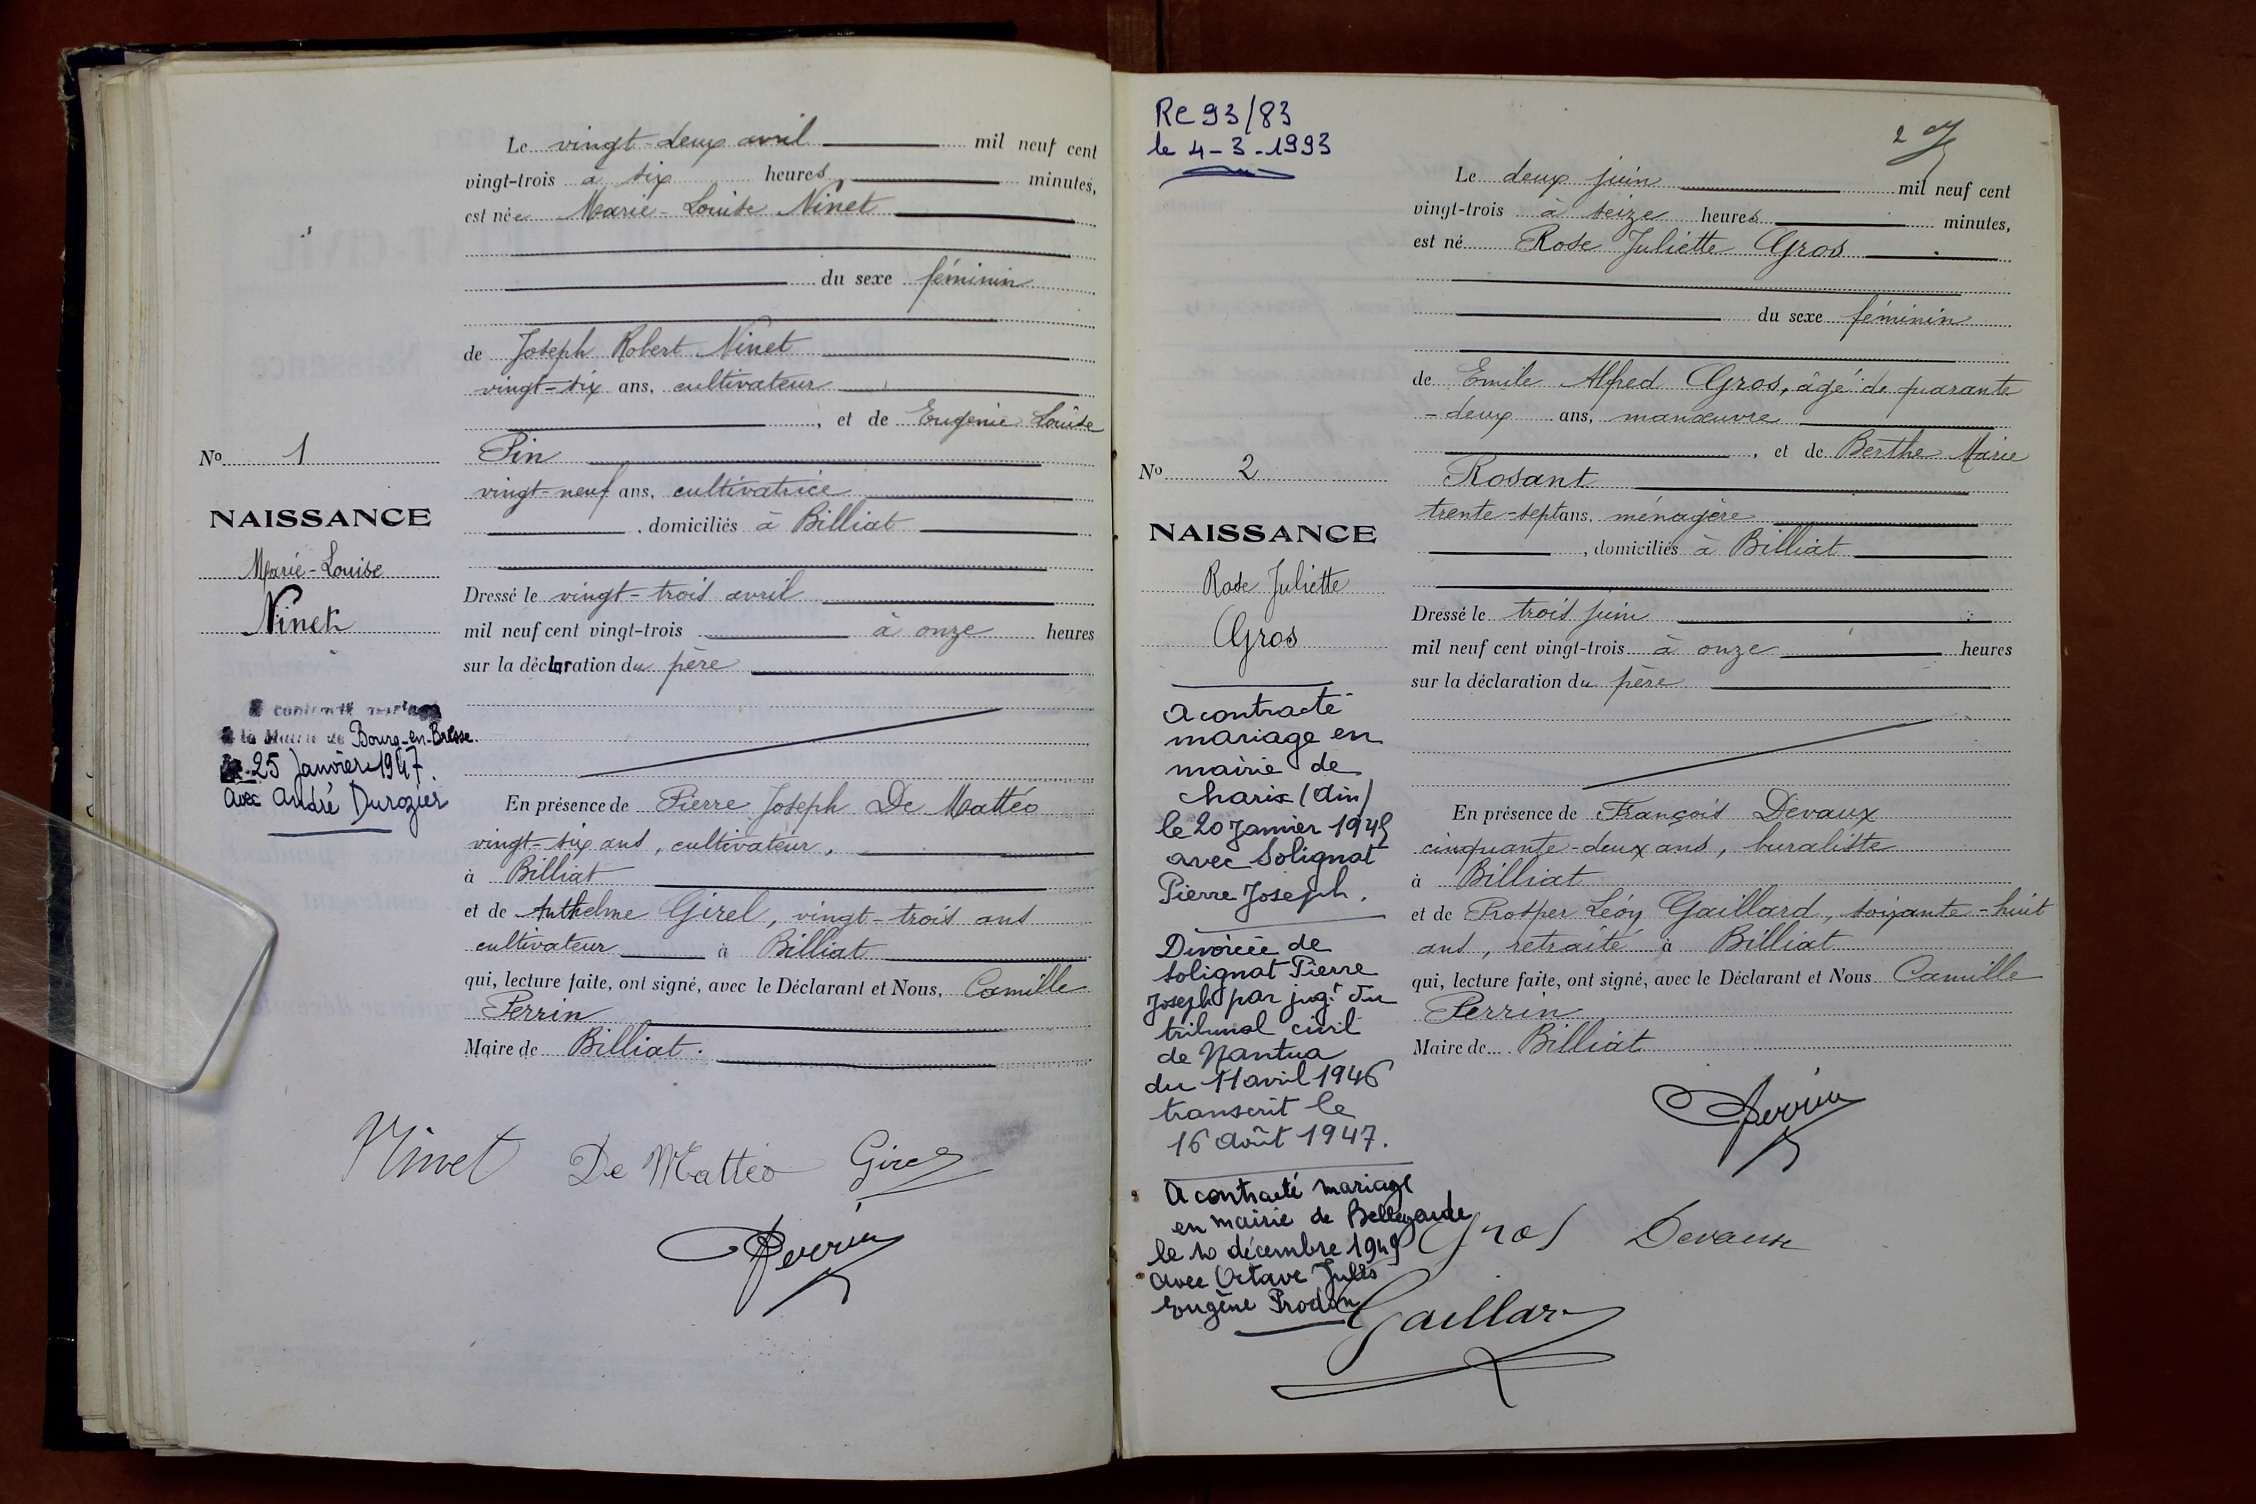 Le vingt-deux avril mil neuf cent
vingt-trois à six heures minutes,
est née Marie-Louise Ninet
du sexe féminin
de Joseph Robert Ninet
vingt-six ans, cultivateur
, et de Eugénie Louise
Pin
vingt-neuf ans, cultivatrice
, domiciliés à Billiat
Dressé le vingt-trois avril
mil neuf cent vingt-trois à onze heures
sur la déclaration du père
En présence de Pierre Joseph De Mattéo
vingt-six ans, cultivateur,
à Billiat
et de Anthelme Girel, vingt-trois ans
cultivateur à Billiat
qui, lecture faite, ont signé, avec le Déclarant et Nous, Camille
Perrin
Maire de Billiat.
No 1
NAISSANCE
Marie-Louise
Ninet
A contracté mariage
à la Mairie de Bourg-en-Bresse.
le 25 Janvier 1947.
avec André Durozier
Ninet De Mattéo Girel
Perrin
RC 93/83
le 4-3-1993
Le deux juin mil neuf cent
vingt-trois à seize heures minutes,
est né Rose Juliette Gros
du sexe féminin
de Emile Alfred Gros, âgé de quarante
-deux ans, manœuvre
, et de Berthe Marie
Rosant
trente-sept ans, ménagère
, domiciliés à Billiat
Dressé le trois juin
mil neuf cent vingt-trois à onze heures
sur la déclaration du père
En présence de François Devaux
cinquante-deux ans, buraliste
à Billiat
et de Prosper Léon Gaillard, soixante-huit
ans, retraité à Billiat
qui, lecture faite, ont signé, avec le Déclarant et Nous Camille
Perrin
Maire de Billiat
No 2
NAISSANCE
Rose Juliette
Gros
A contracté
mariage en
mairie de
Charix (Ain)
le 20 Janvier 1945
avec Solignat
Pierre Joseph.
Divorcée de
Solignat Pierre
Joseph par jugt du
tribunal civil
de Nantua
du 11 avril 1946
transcrit le
16 Août 1947.
A contracté mariage
en mairie de Bellegarde
le 10 décembre 1949
avec Octave Jules
Eugène Prodon
Perrin
Gros Devaux
Gaillard